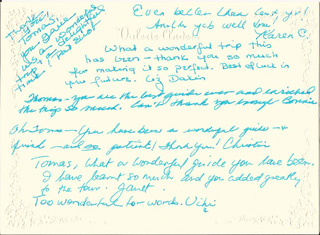 Even better than last yr!
And the yob well done
Karen C.
Thanks,
Tomas,
you gave
us a wonderful
trip
time
What a wonderful trip this
has been – thank you so much
for making it so perfect. Best of luck in
your future. Liz Dakin
Thomas – you are the best guide ever and enriched
the trip so much. Can't thank you enough Connie
Oh Tomas – You have been a wonderful guide – &
friend – and so patient! Thank you! Christin
Tomas, What a wonderful guide you have been.
I have learnt so much and you added greatly
to the tour. Janet.
Too wonderful for words. Vicki